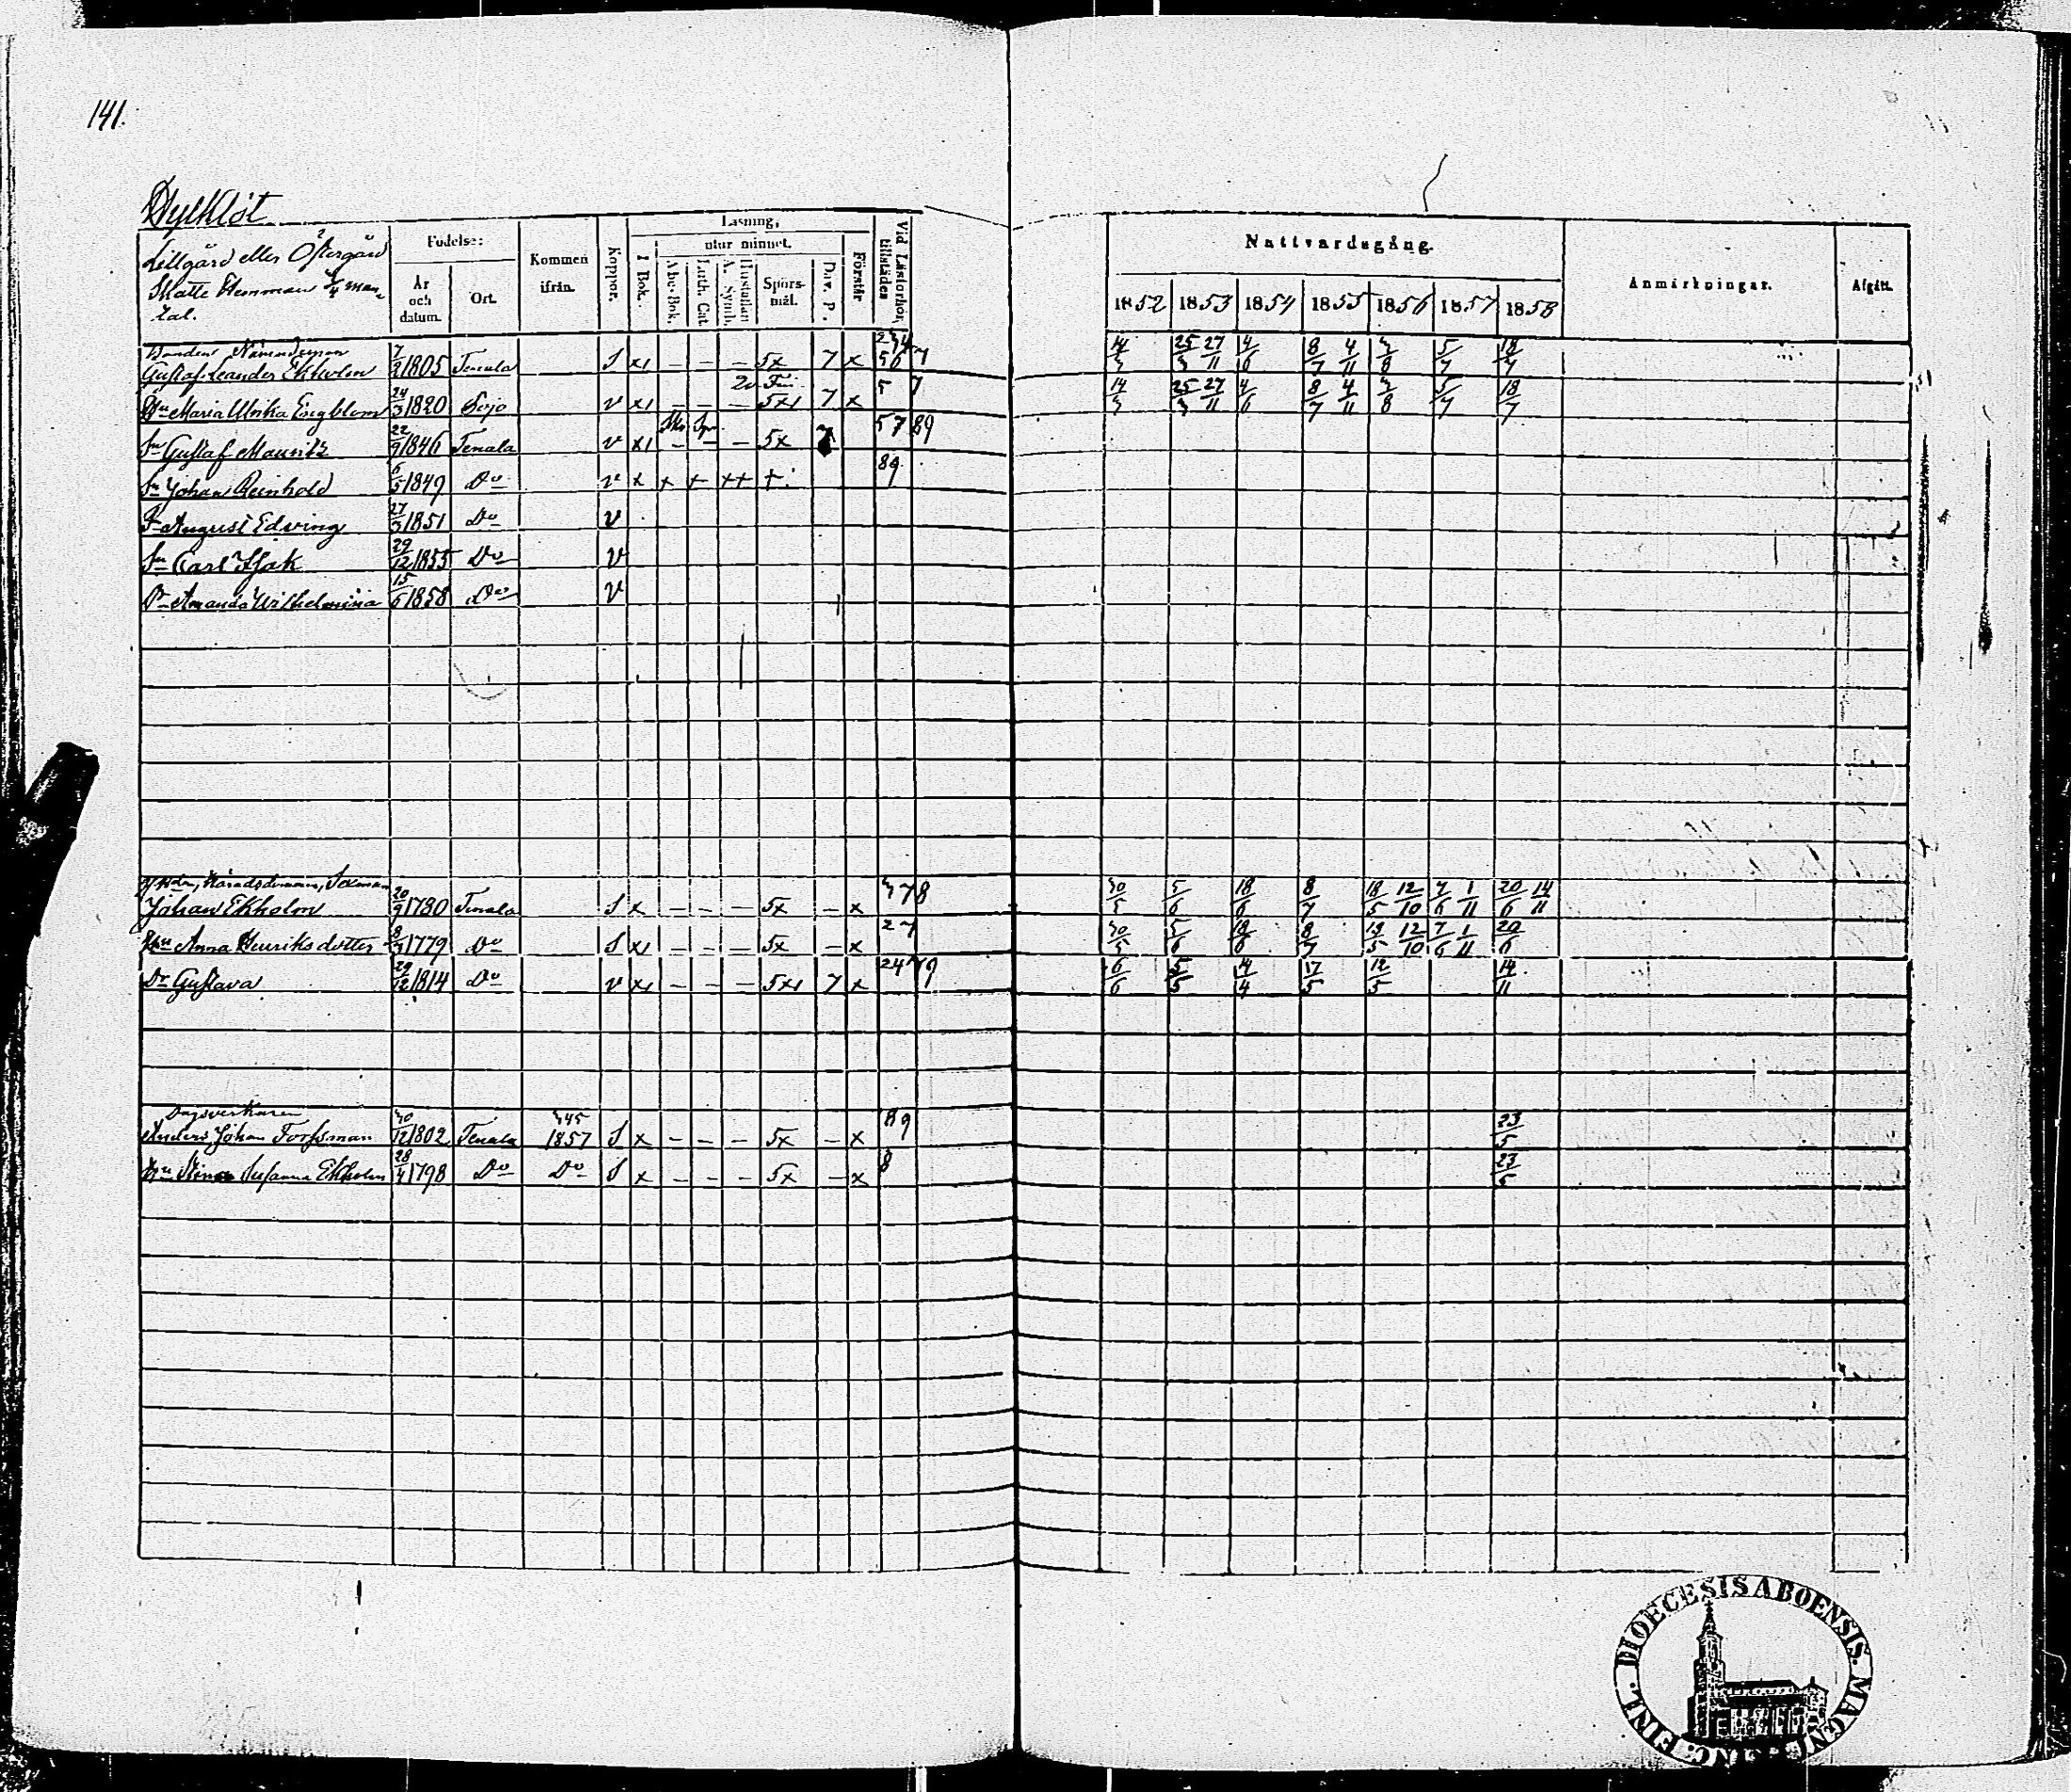 141.
Lillgård eller Östergård
Skatte Hemman 3/4 man-
tal.
Födelse:
År och datum.
Ort.
Kommen ifrån.
Koppor.
Läsning,
I Bok.
utur minnet.
Abc-Bok.
Luth. Cat.
Hustaflan A. Symb.
Spörsmål.
Dav. P.
Förstår
Vid Läsförhör, tillstädes
Nattvardsgång.
1852 1853 1854 1855 1856 1857 1858
Anmärkningar.
Afgått.
Bonden Nämndeman
Gustaf Leander Ekholm 1805 Tenala S x1 – – – 5x 7 x 14/3 25/3 27/11 4/6 8/7 4/11 3/8 5/7 18/7
Hu Maria Ulrika Engblom 24/3 1820 v x1 – – – 5x1 7 x 5 7 14/3 25/3 27/11 4/6 8/7 4/11 3/8 5/7 18/7
Sn Gustaf Mauritz 22/9 1846 Tenala v x1 – – – 5x 5 7 89
Sn Johan Reinhold 6/5 1849 Do v x x + ++ + 89
Sn August Edving 27/3 1851 Do v
Sn Carl Isak 29/12 1855 Do v
Dr Amanda Wilhelmina 15/6 1858 Do v
Johan Ekholm 20/9 1780 Tenala S x – – – 5x – x 378 30/5 5/6 18/6 8/7 18/5 12/10 7/6 1/11 20/6 14/11
Hu Anna Henriksdotter 1779 Do S x1 – – – 5x – x 27 30/5 5/6 18/6 8/7 18/5 12/10 7/6 1/11 20/6
Dr Gustava 29/12 1814 Do v x1 – – – 5x1 7 x 6/6 5/5 4/4 17/5 12/5 14/11
Dagsverkaren
Anders Johan Forssman 30/12 1802 Tenala 345 1857 S x – – – 5x – x 89 23/5
Hu Stina Susanna Ekholm 28/4 1798 Do Do S x – – – 5x – x 8 23/5
DIOECESIS ABOENSIS. MAGNI. FINL.